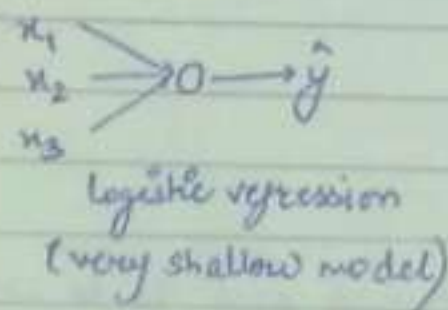 x₁
x₂ ŷ
x₃
logistic regression
(very shallow model)